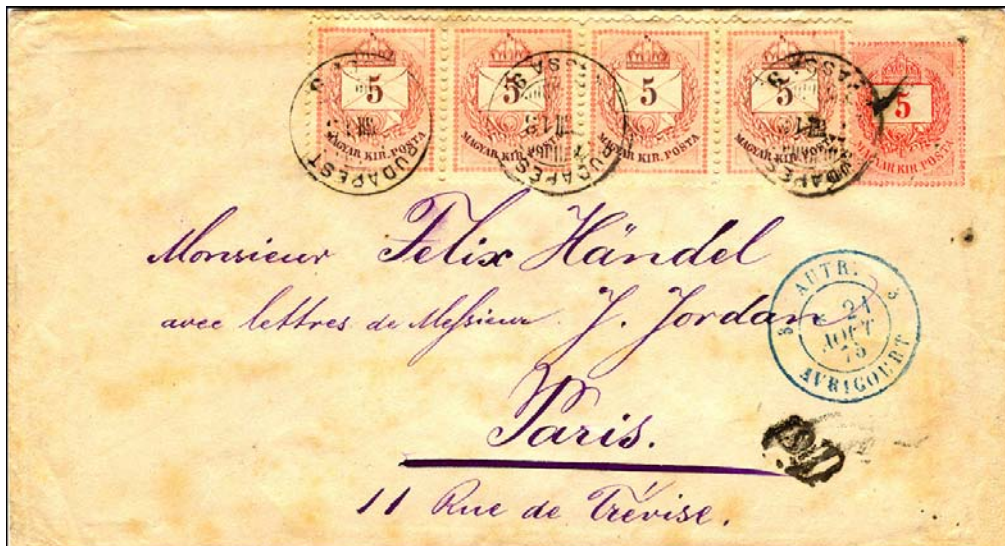 5 5 5 5 5
MAGYAR KIR. POSTA MAGYAR KIR. POSTA MAGYAR KIR. POSTA MAGYAR KIR. POSTA MAGYAR KIR. POSTA
BUDAPEST BUDAPEST BUDAPEST
Monsieur Felix Händel
avec lettres de Messieur J. Jordan
Paris.
11 Rue de Trévise.
3 AUTR. 3
21
AOUT
75
AVRICOURT
PD